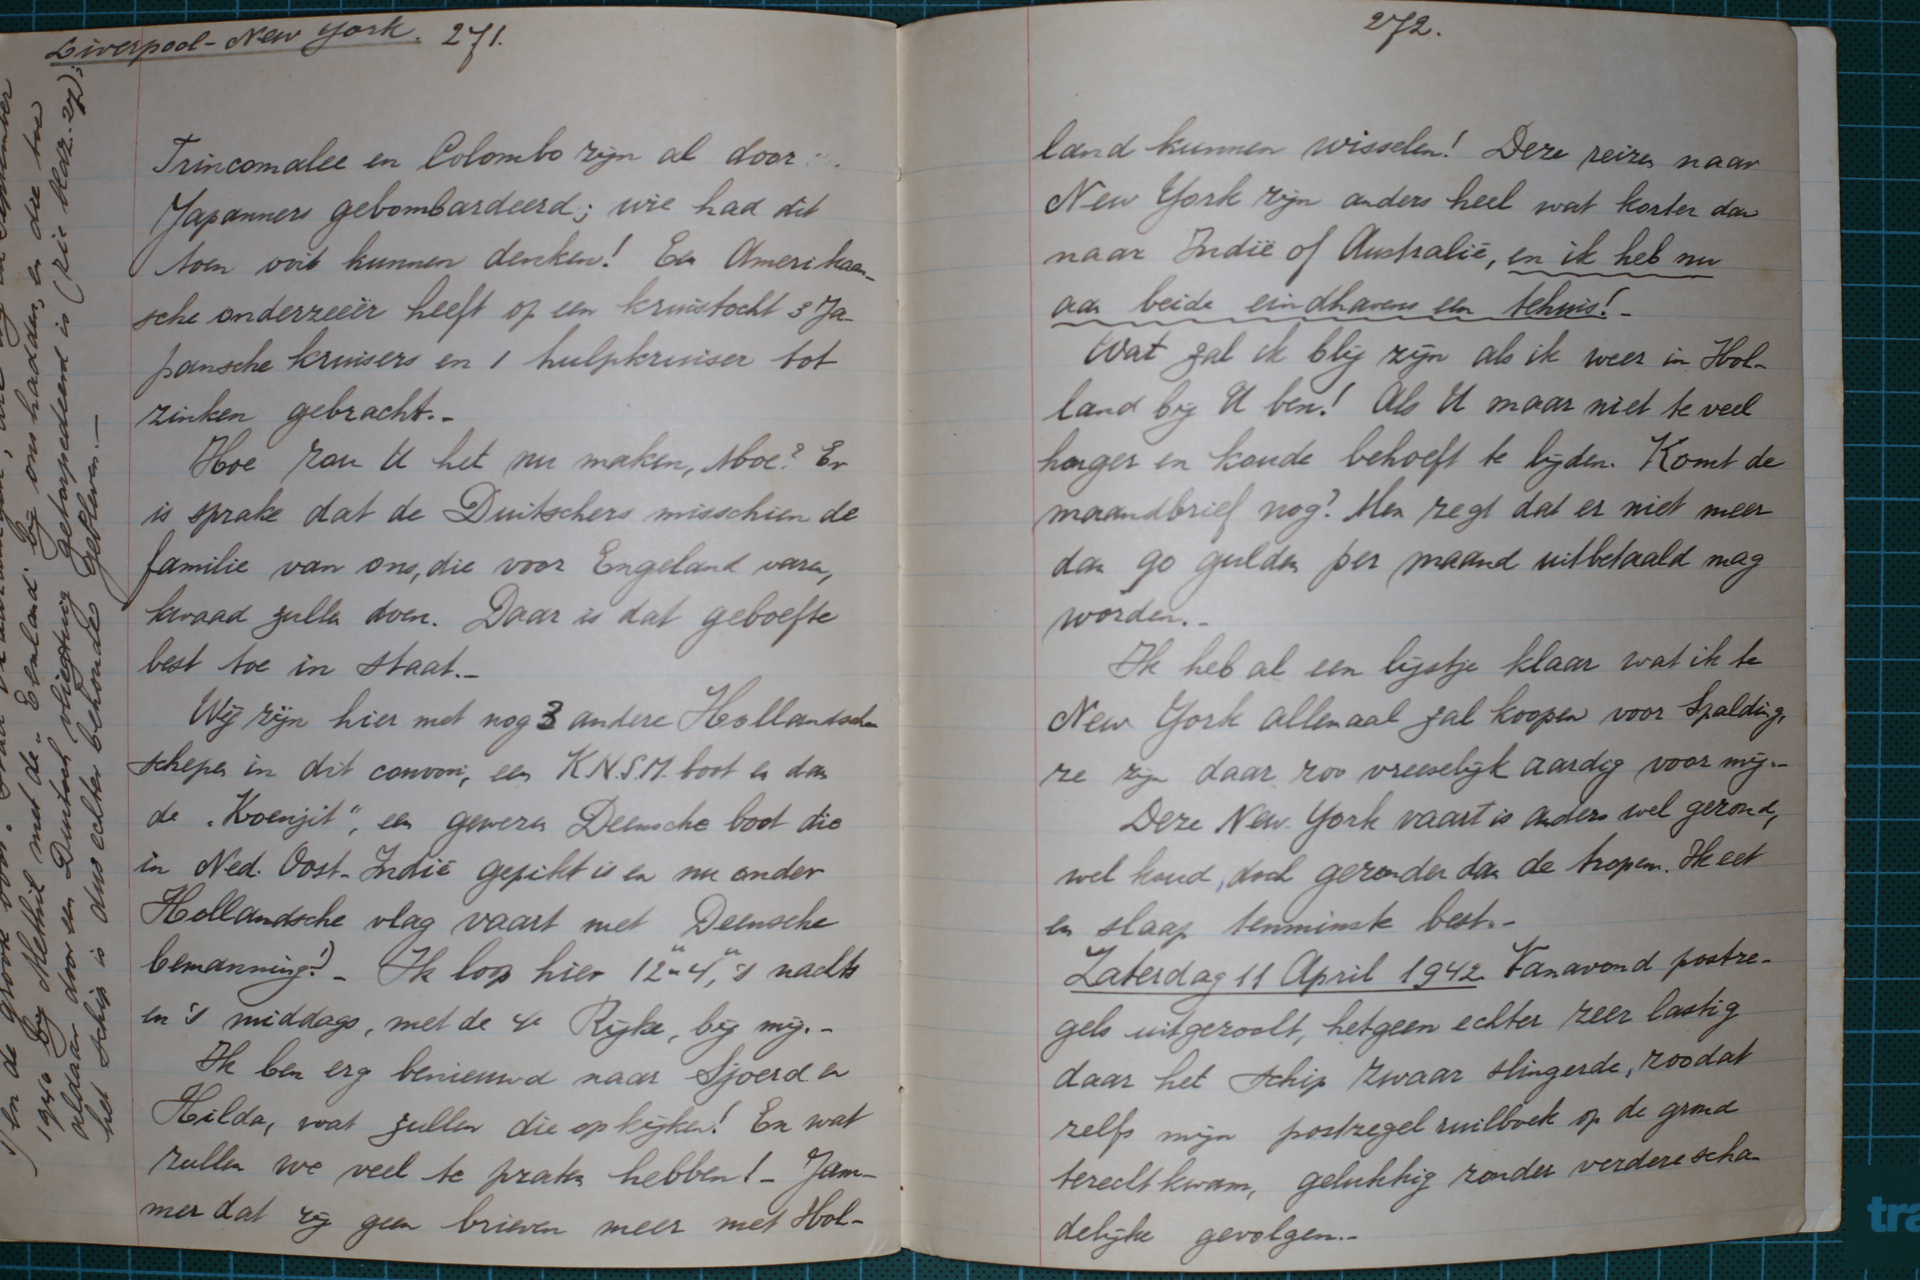 Liverpool - New York. 271.
Trincomalee en Colombo zijn al door
Japanners gebombardeerd; wie had dit
toen ooit kunnen denken! Een Amerikaan-
sche onderzeeër heeft op een kruistocht 3 Ja-
pansche kruisers en 1 hulpkruiser tot
zinken gebracht.-
Hoe zou U het nu maken, Moe? Er
is sprake dat de Duitschers misschien de
familie van ons, die voor Engeland varen,
kwaad zullen doen. Daar is dat geboefte
best toe in staat.-
Wij zijn hier met nog 3 andere Hollandsche
schepen in dit convooi, een K.N.S.M. boot en dan
de "Koenjit", een gewezen Deensche boot die
in Ned. Oost-Indië gepikt is en nu onder
Hollandsche vlag vaart met Deensche
bemanning!) - Ik loop hier 12-4, 's nachts
en 's middags, met de 4e Rijke, bij mij.-
Ik ben erg benieuwd naar Sjoerd en
Hilda, wat zullen die opkijken! En wat
zullen we veel te praten hebben! - Jam-
mer dat zij geen brieven meer met Hol-
1940 bij Methil met de "Eemland" bij ons hadden, en die toe
aldaar door een Duitsch vliegtuig getorpedeerd is (zie bladz. 27);
het schip is dus echter behouden gebleven.-
272.
land kunnen wisselen! Deze reizen naar
New York zijn anders heel wat korter dan
naar Indië of Australië, en ik heb nu
aan beide eindhavens een tehuis! -
Wat zal ik blij zijn als ik weer in Hol-
land bij U ben! Als U maar niet te veel
honger en koude behoeft te lijden. Komt de
maandbrief nog? Men zegt dat er niet meer
dan 90 gulden per maand uitbetaald mag
worden. -
Ik heb al een lijstje klaar wat ik te
New York allemaal zal koopen voor Spalding,
ze zijn daar zoo vreeselijk aardig voor mij.-
Deze New-York vaart is anders wel gezond,
wel koud, doch gezonder dan de tropen. Ik eet
en slaap tenminste best.-
Zaterdag 11 April 1942. Vanavond postze-
gels uitgezocht, hetgeen echter zeer lastig
daar het schip zwaar slingerde, zoodat
zelfs mijn postzegelruilboek op de grond
terecht kwam, gelukkig zonder verdere scha-
delijke gevolgen.-
tra